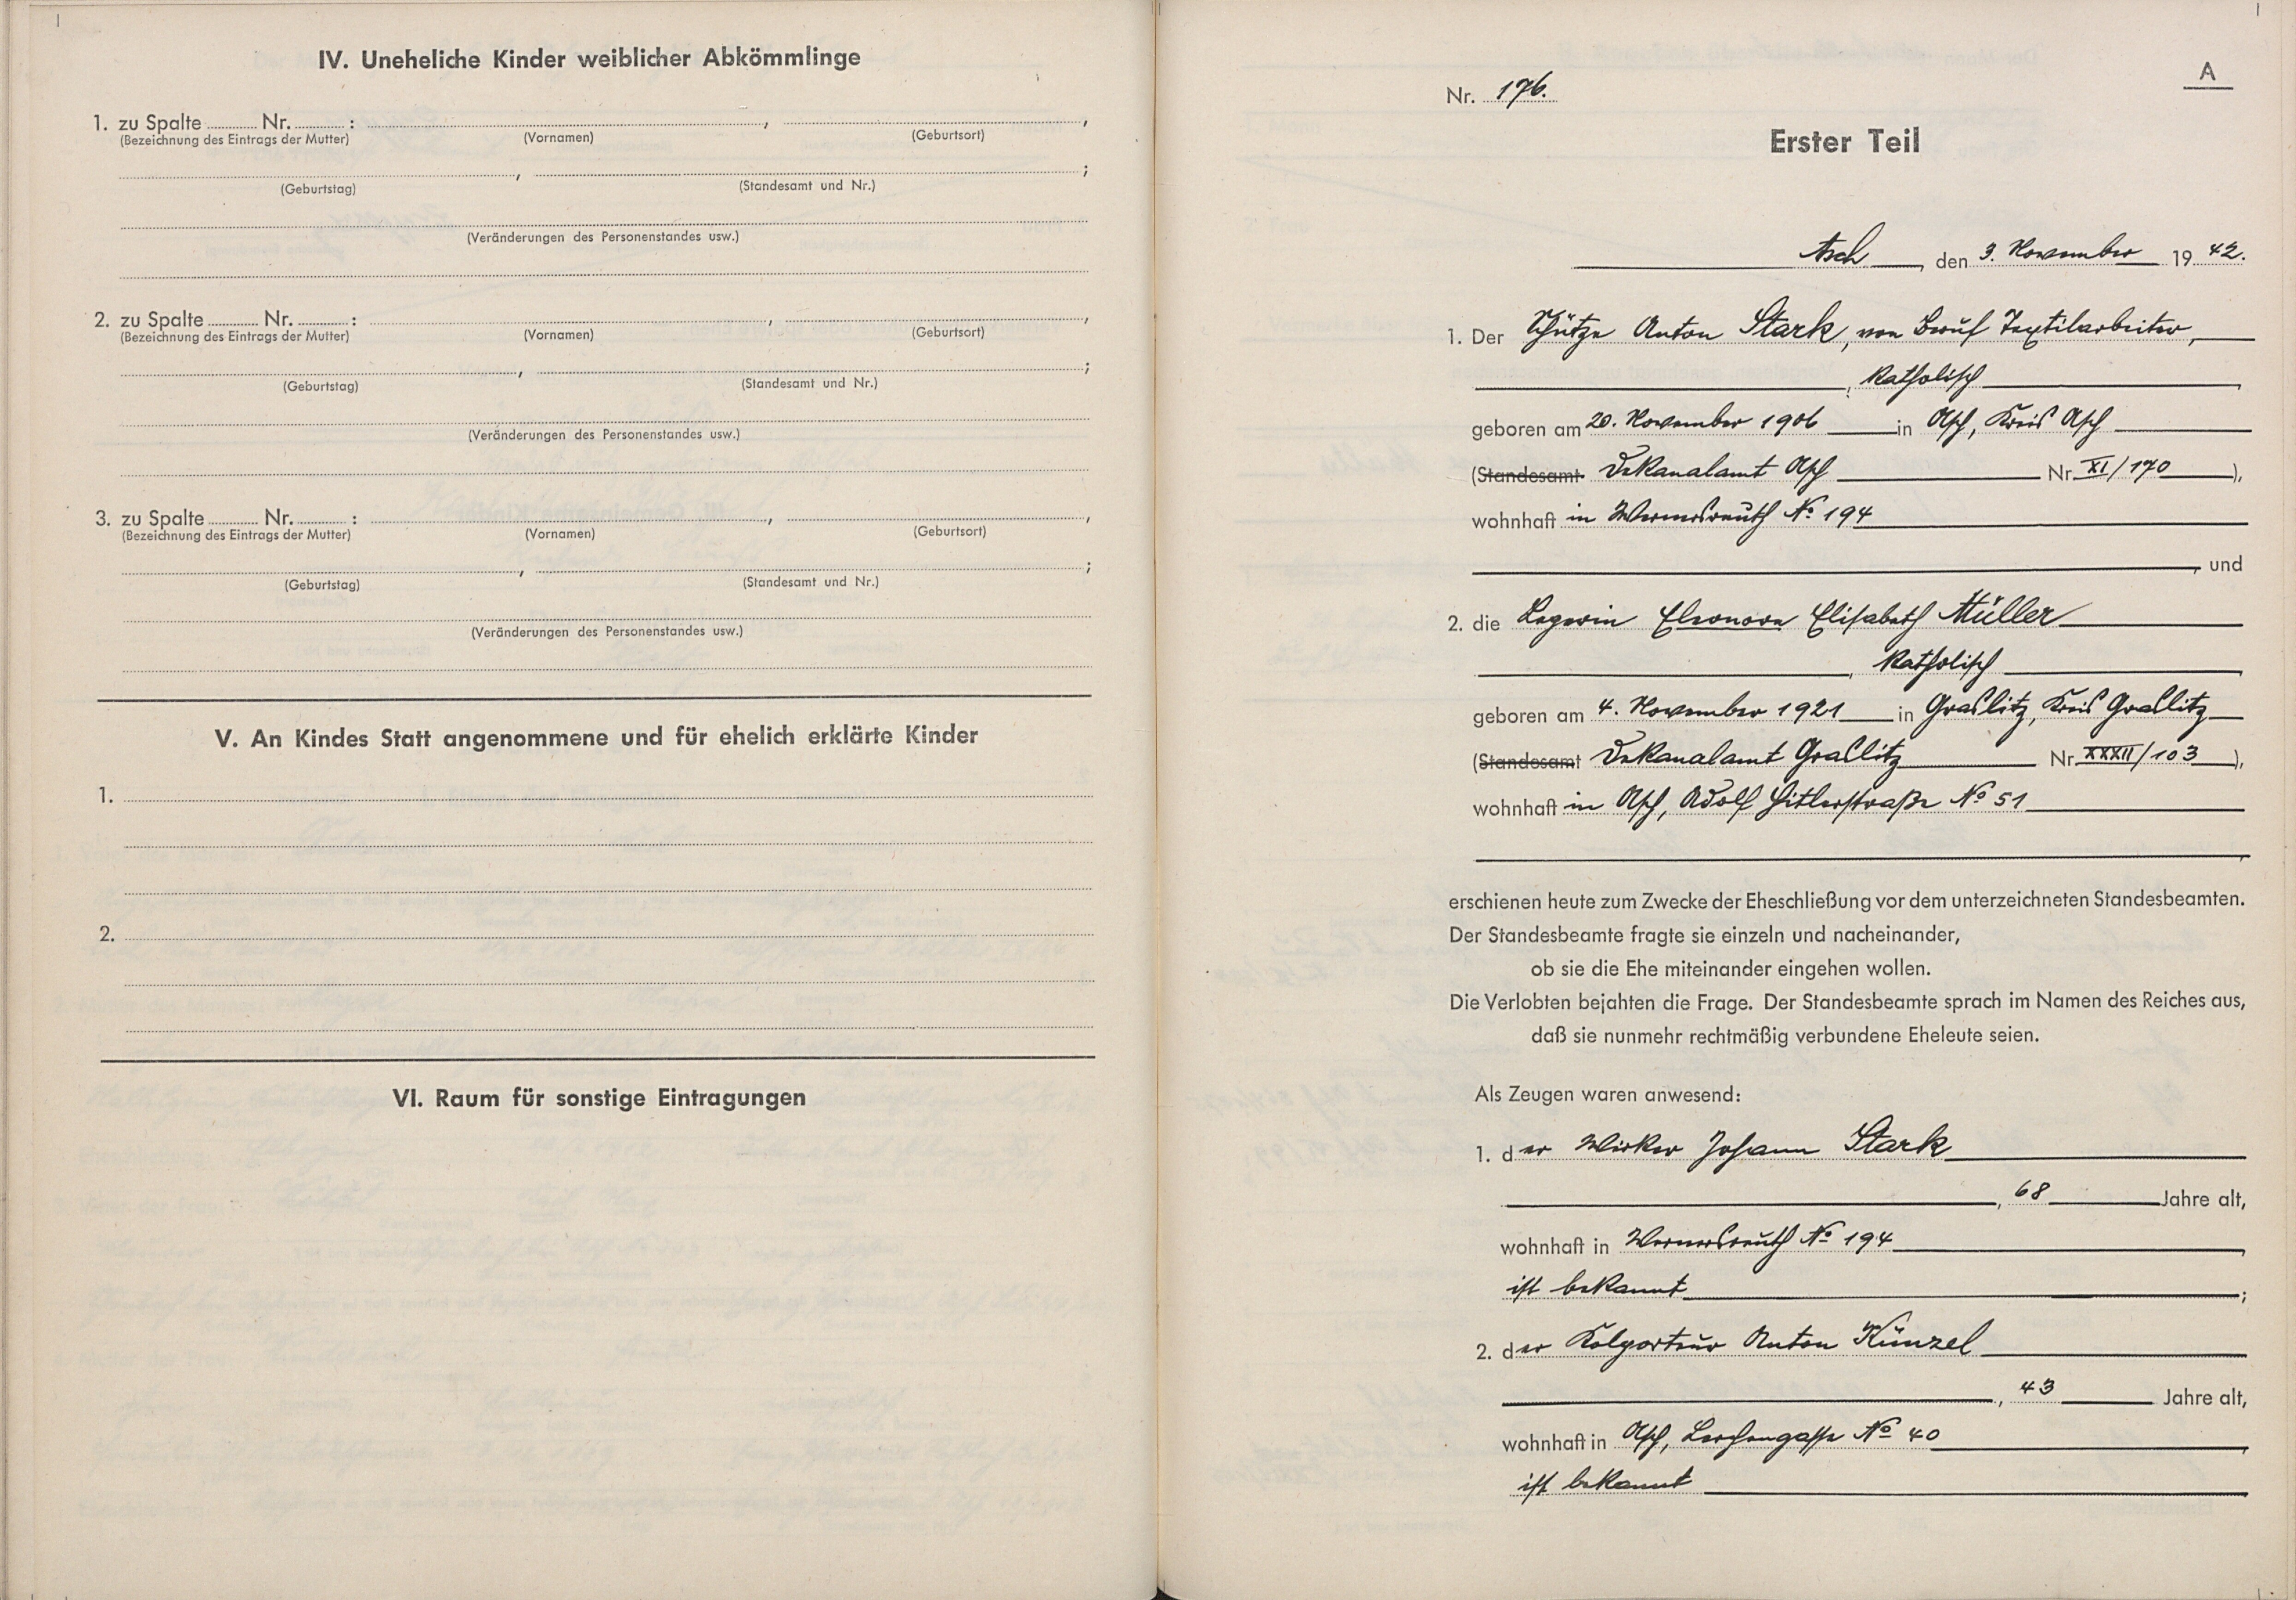 IV. Uneheliche Kinder weiblicher Abkömmlinge
1. zu Spalte ............ Nr. ............ : ............ , ............ ,
(Bezeichnung des Eintrags der Mutter) (Vornamen) (Geburtsort)
............ , ............ ;
(Geburtstag) (Standesamt und Nr.)
(Veränderungen des Personenstandes usw.)
2. zu Spalte ............ Nr. ............ : ............ , ............ ,
(Bezeichnung des Eintrags der Mutter) (Vornamen) (Geburtsort)
............ , ............ ;
(Geburtstag) (Standesamt und Nr.)
(Veränderungen des Personenstandes usw.)
3. zu Spalte ............ Nr. ............ : ............ , ............ ,
(Bezeichnung des Eintrags der Mutter) (Vornamen) (Geburtsort)
............ , ............ ;
(Geburtstag) (Standesamt und Nr.)
(Veränderungen des Personenstandes usw.)
V. An Kindes Statt angenommene und für ehelich erklärte Kinder
1.
2.
VI. Raum für sonstige Eintragungen
A
Nr. 176.
Erster Teil
Asch, den 3. November 1942.
1. Der Schütze Anton Stark, von Beruf Textilarbeiter,
, katholisch ,
geboren am 20. November 1906 in Asch, Kreis Asch
(Standesamt Dekanalamt Asch Nr. XI/170 ),
wohnhaft in Wernersreuth No 194
, und
2. die Legerin Eleonora Elisabeth Müller
, katholisch ,
geboren am 4. November 1921 in Graslitz, Kreis Graslitz
(Standesamt Dekanalamt Graslitz Nr. XXXII/103 ),
wohnhaft in Asch, Adolf Hitlerstraße No 51
,
erschienen heute zum Zwecke der Eheschließung vor dem unterzeichneten Standesbeamten.
Der Standesbeamte fragte sie einzeln und nacheinander,
ob sie die Ehe miteinander eingehen wollen.
Die Verlobten bejahten die Frage. Der Standesbeamte sprach im Namen des Reiches aus,
daß sie nunmehr rechtmäßig verbundene Eheleute seien.
Als Zeugen waren anwesend:
1. der Wirker Johann Stark
, 68 Jahre alt,
wohnhaft in Wernersreuth No 194 ,
ist bekannt ;
2. der Kolporteur Anton Künzel
, 43 Jahre alt,
wohnhaft in Asch, Lerchengasse No 40 ,
ist bekannt